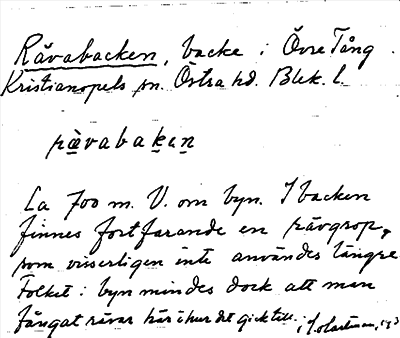 Rävabacken, backe i Övre Tång.
Kristianopels sn. Östra hd. Blek. l.
rävabaken
Ca 700 m. V. om byn. I backen
finnes fortfarande en rävgrop,
som visserligen inte användes längre
Folket i byn mindes dock att man
fångat rävar här i hur det gick till.